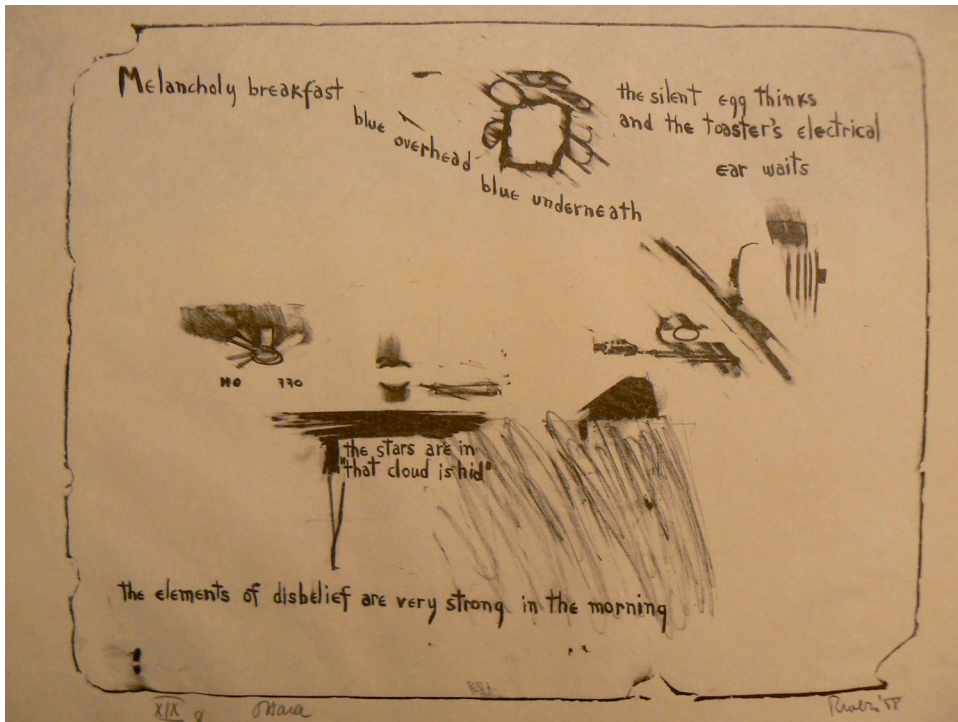 Melancholy breakfast
blue overhead
blue underneath
the silent egg thinks
and the toaster's electrical
ear waits
NO 770
the stars are in
"that cloud is hid"
the elements of disbelief are very strong in the morning
XIX
O'Hara
Rivers '58